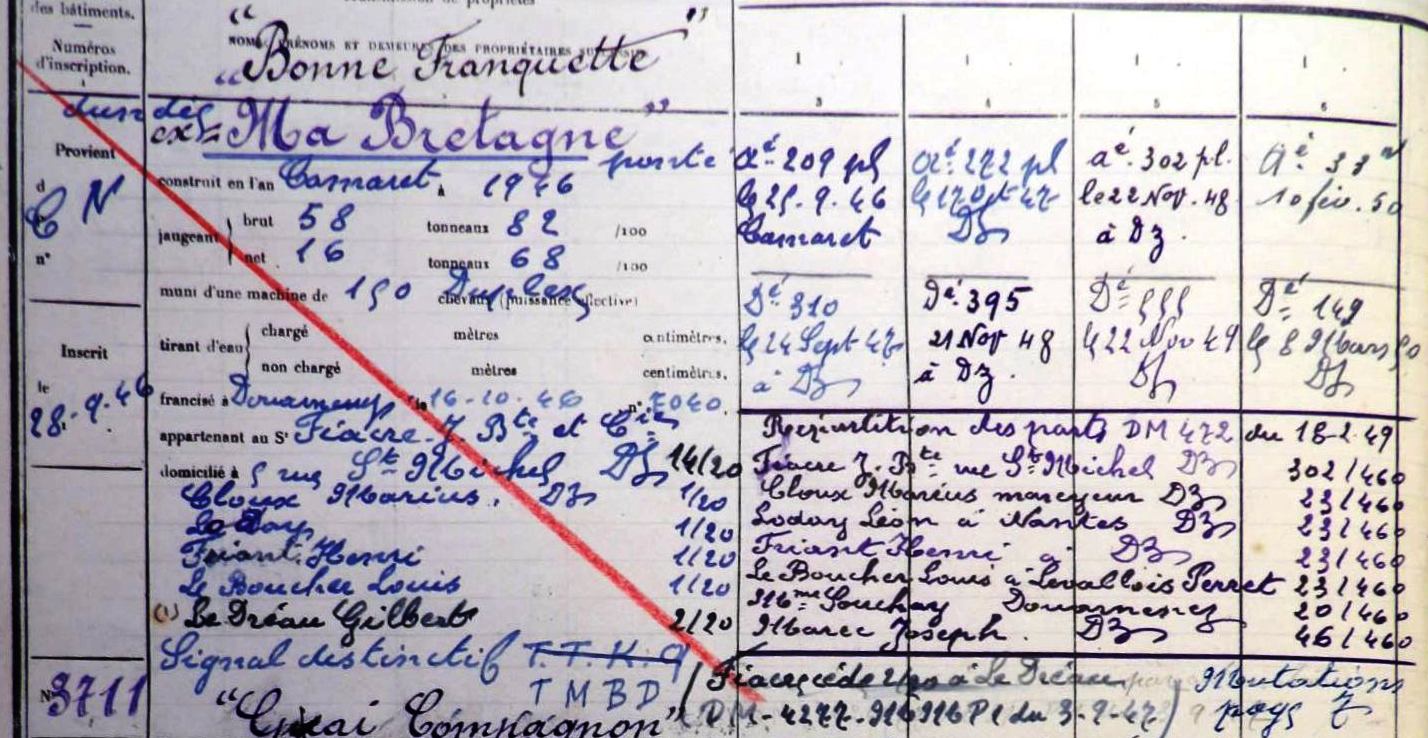 des bâtiments.
Numéros
d'inscription.
NOMS, PRÉNOMS ET DEMEURES DES PROPRIÉTAIRES
"Bonne Franquette"
1 1 1 1
3 4 5 6
ex = "Ma Bretagne" ponté
Provient
d
C N
n°
construit en l'an Camaret à 1946
jaugeant brut 58 tonneaux 82 /100
net 16 tonneaux 68 /100
muni d'une machine de 150 Duplex chevaux (puissance effective)
tirant d'eau chargé mètres centimètres.
non chargé mètres centimètres.
Inscrit
le
28.9.46
francisé à Douarnenez le 16-10-46 n° 7040
appartenant au Sr Fiacre J. Bte et Cie
domicilié à 5 rue St Michel DZ 14/20
Cloux Marius. DZ 1/20
1/20
Friant Henri 1/20
Le Boucher Louis 1/20
(1) Le Dréau Gilbert 2/20
Signal distinctif T.T.K.Q
TMBD
N° 3711
"Guai Compagnon"
Aé 209 pl
le 25.9.46
Camaret
Dé 310
le 24 Sept 47
à DZ
Aé 272 pl
le 17 Oct 47
DZ
Dé 395
21 Nov 48
à DZ.
aé. 302 pl.
le 22 Nov. 48
à DZ.
Dé 555
le 22 Nov 49
DZ
Aé 33
10 fév. 50
Dé 149
le 8 Mars 50
DZ
Répartition des parts DM 472 du 18-2-49
Fiacre J. Bte rue St Michel DZ 302/460
Cloux Marius mareyeur DZ 23/460
Loday Léon à Nantes DZ 23/460
Friant Henri à DZ 23/460
Le Boucher Louis à Levallois Perret 23/460
Mme Souchay Douarnenez 20/460
Marec Joseph. DZ 46/460
(Fiacre cède 2/20 à Le Dréau
DM-4277-
du 3-9-47)
Mutations
pays